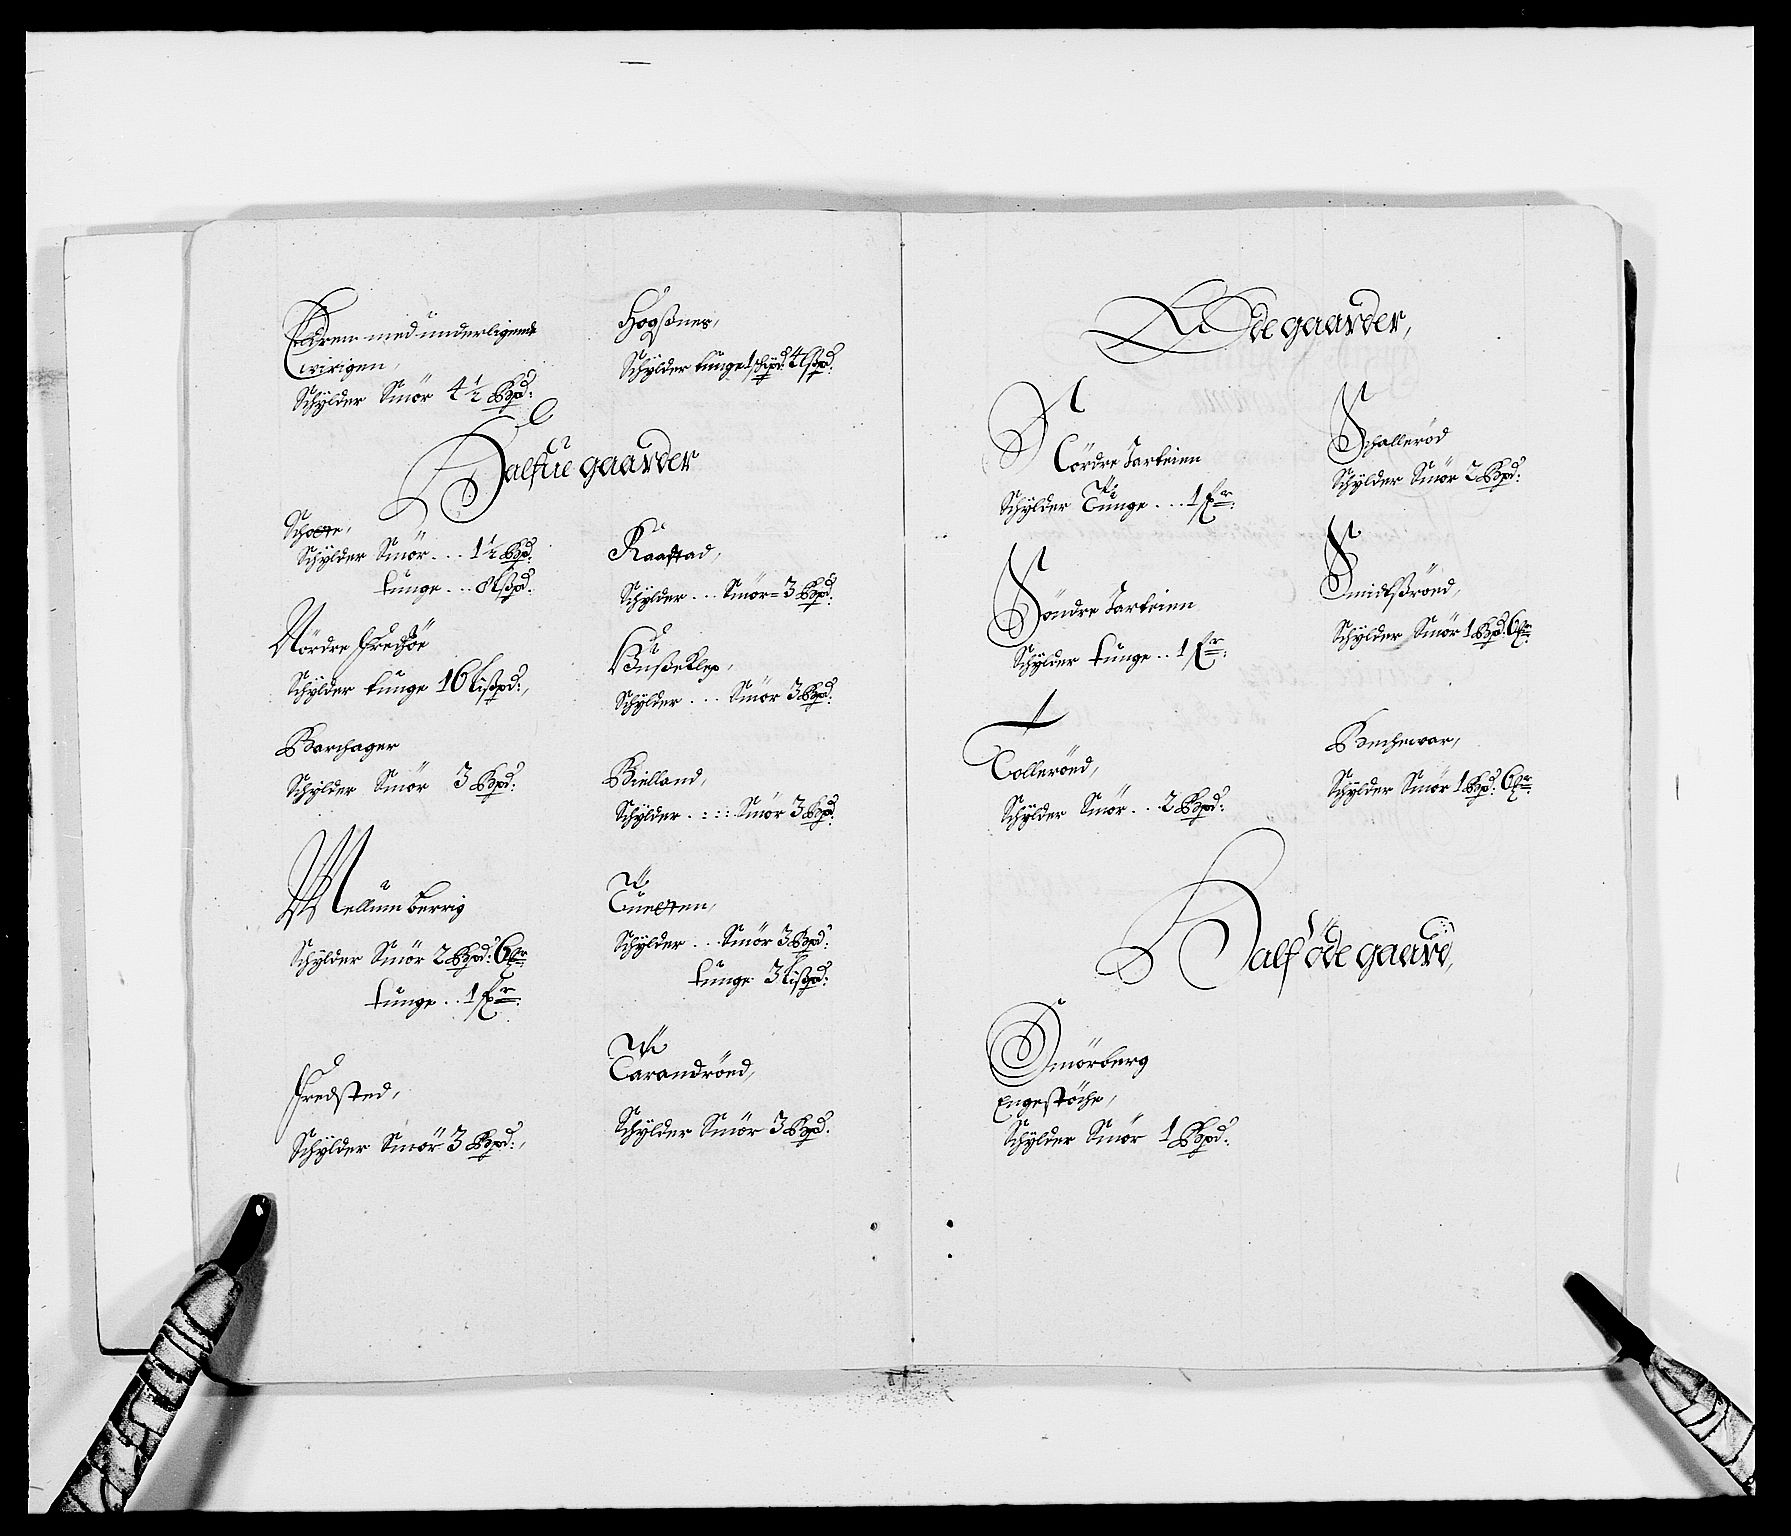 med underligende
Schylder Smör 4½ Bpd:
Hogßnes,
Schylder tunge 1 schpd: 4 lßpd.
Halfue gaarder
Schylder Smör... 1½ Bpd:
tunge... 8 lßpd.
Nördre Fredsöe
Schylder tunge 16 Lißpd:,
Barchager
Schylder Smör 3 Bpd:
Mellumberrig
Schylder Smör 2 Bpd: 6 mr
tunge.. 1 fr:
Fredsted,
Schylder Smör 3 Bpd:,
Raastad,
Schylder... Smör= 3 Bpd:
Bußeklep,
Schylder... Smör 3 Bpd:
Bielland,
Schylder.:::Smör 3 Bpd:
Tueten,
Schylder... Smör 3 Bpd:
tunge 3 Lißpd:
Tarandröed,
Schylder Smör 3 Bpd.
Ödegaarder,
Nördre Jarteien
Schylder Tunge... 1 fr:
Söndre Jarteien
Schylder tunge.. 1 fr:
Tolleröed,
Schylder Smör.. 2 Bpd:
Schalleröd
Schylder Smör 2 Bpd:
Smidtßröed,
Schylder Smör 1 Bpd: 6 mr
Bechewar,
Schylder Smör 1 Bpd: 6 mr
Half öde gaard,
Smörberg
Engestöche,
Schylder Smör 1 Bpd: